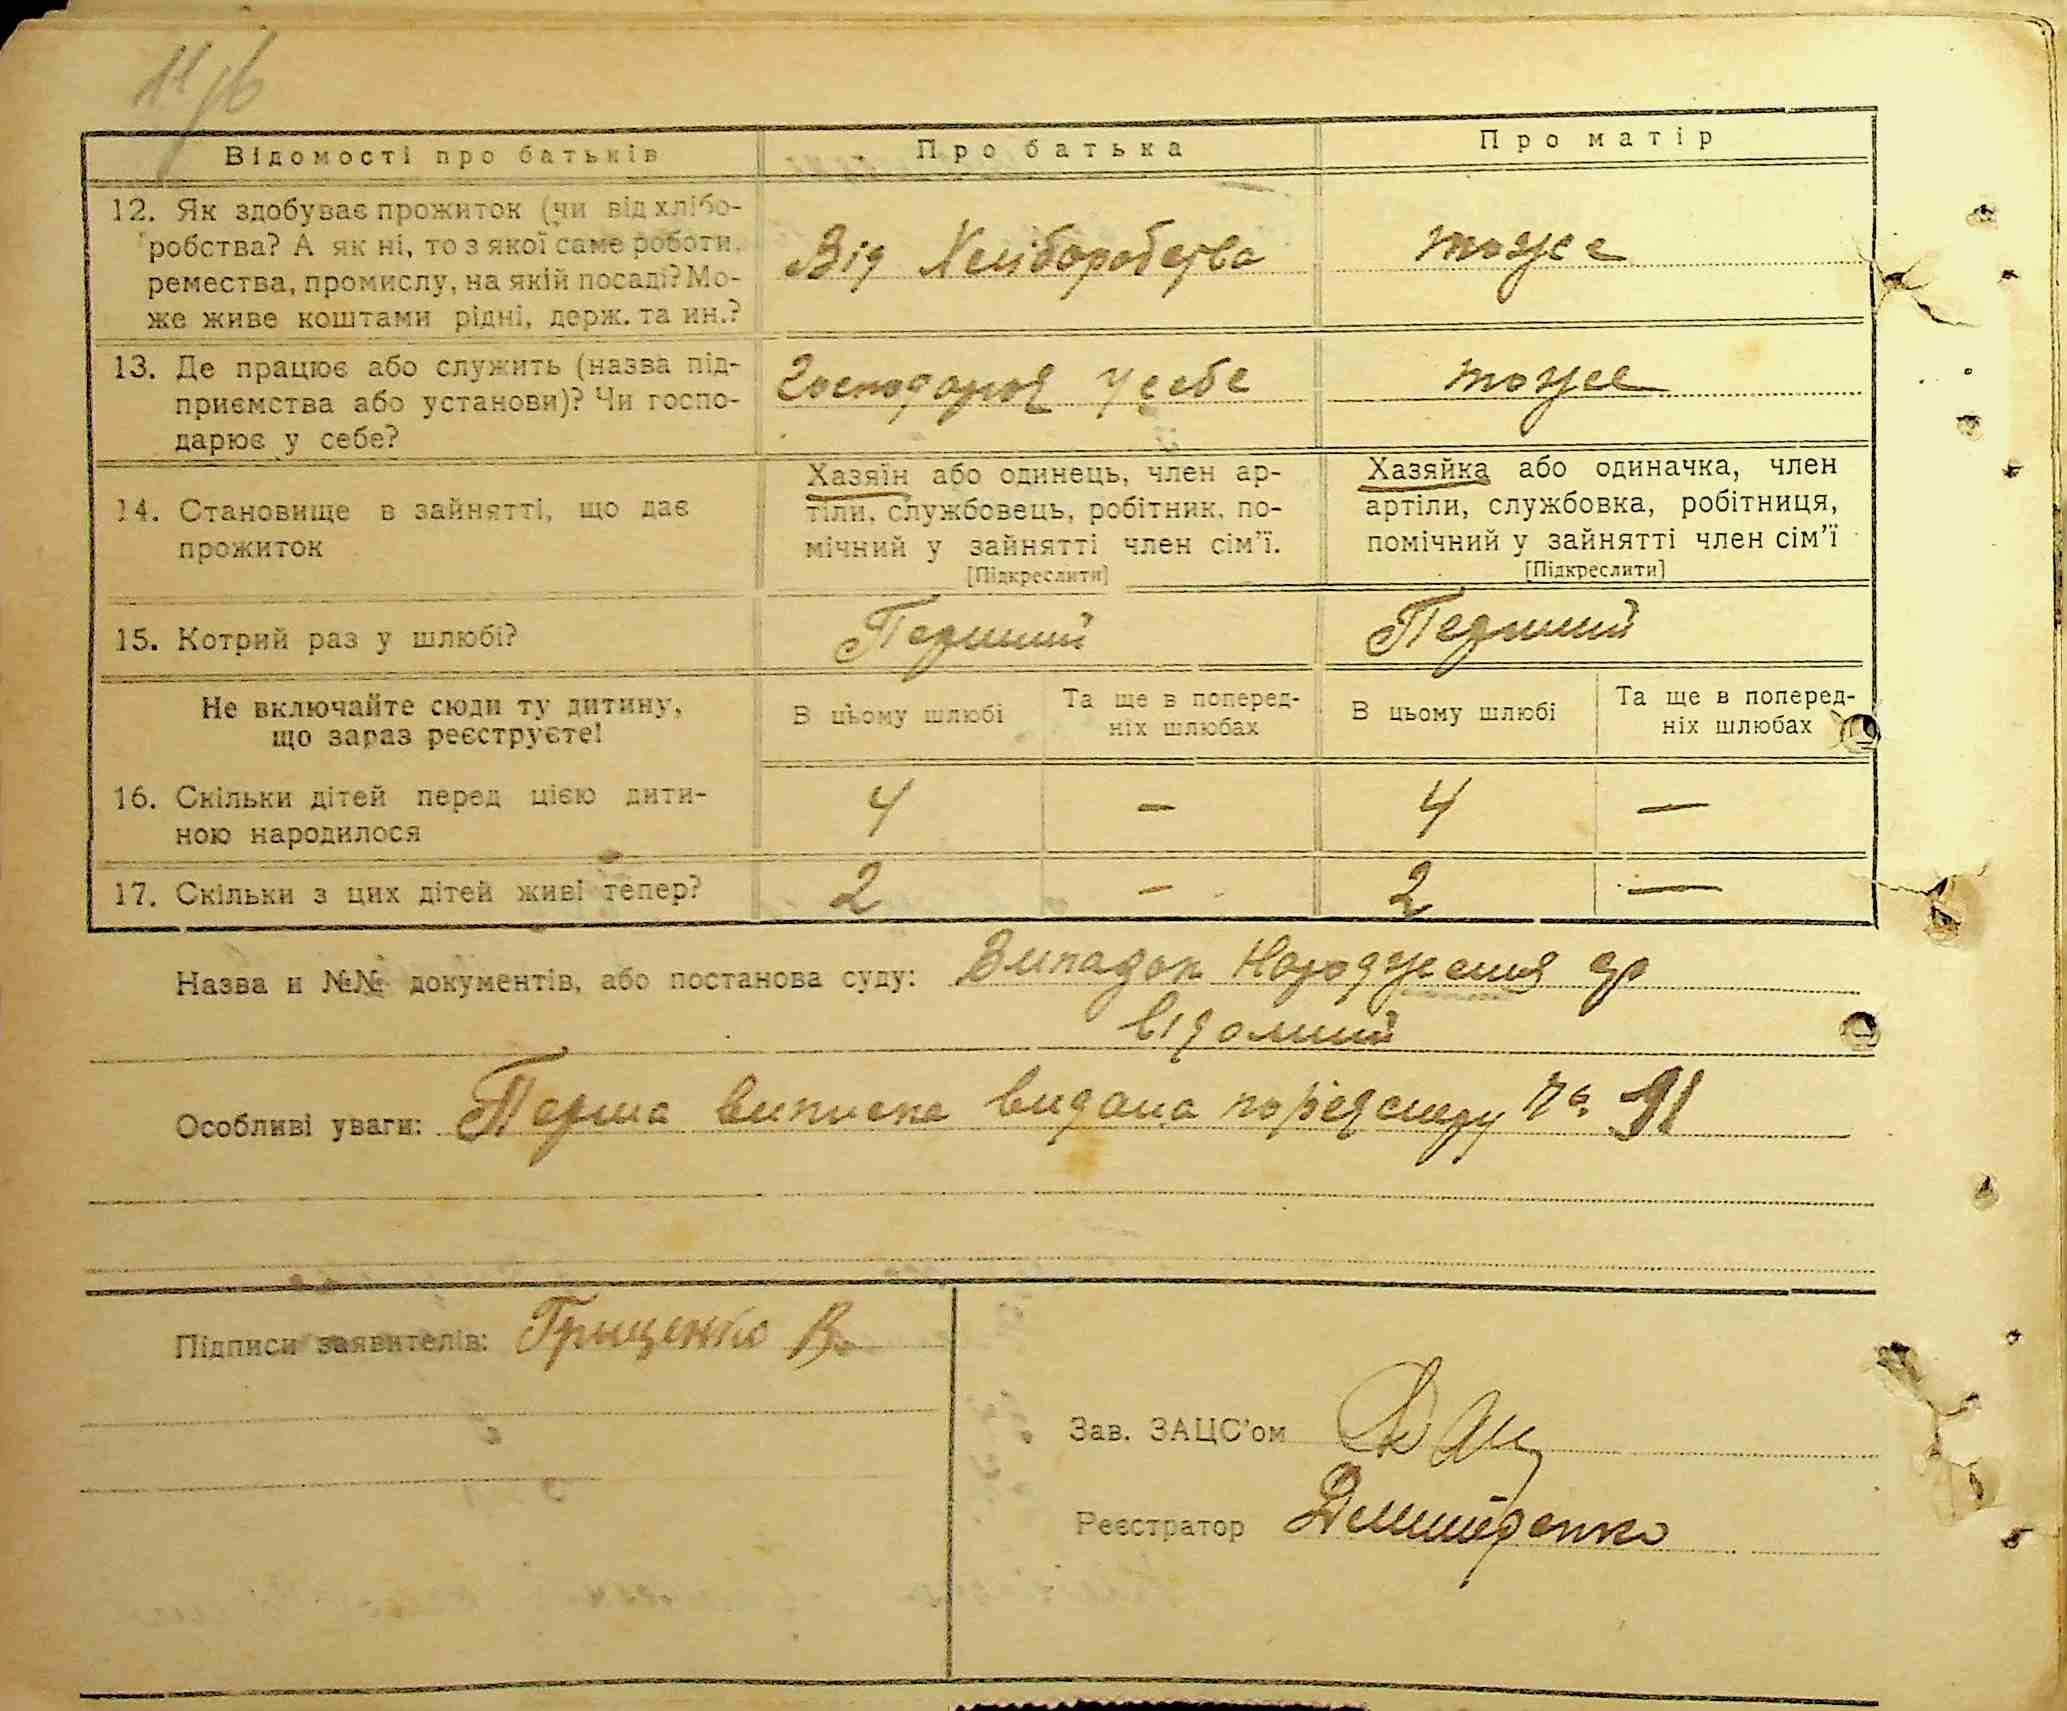 Відомості про батьків
Про батька
Про матір
12. Як здобуває прожиток (чи від хлібо-
робства? А як ні, то з якої саме роботи,
ремества, промислу, на якій посаді? Мо-
же живе коштами рідні, держ. та ин.?
Від Хліборобства
тоже
13. Де працює або служить (назва під-
приємства або установи)? Чи госпо-
дарює у себе?
Господарює у себе
тоже
14. Становище в зайнятті, що дає
прожиток
Хазяїн або одинець, член ар-
тіли, службовець, робітник, по-
мічний у зайнятті член сім'ї.
[Підкреслити]
Хазяйка або одиначка, член
артіли, службовка, робітниця,
помічний у зайнятті член сім'ї
[Підкреслити]
15. Котрий раз у шлюбі?
Перший
Перший
Не включайте сюди ту дитину,
що зараз реєструєте!
В цьому шлюбі
Та ще в поперед-
ніх шлюбах
В цьому шлюбі
Та ще в поперед-
ніх шлюбах
16. Скільки дітей перед цією дити-
ною народилося
4 — 4 —
17. Скільки з цих дітей живі тепер?
2 — 2 —
Назва и №№ документів, або постанова суду: Випадок Народження
відомий
Особливі уваги: Перша виписка видана 91
Підписи заявителів: Грищенко В.
Зав. ЗАЦС'ом
Реєстратор